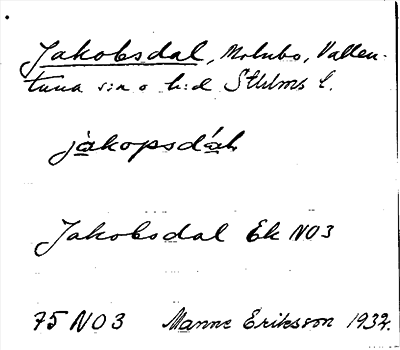 Jakobsdal, Molnbo, Vallen-
tuna s:n o h:d Sthlms l.
jàkopsdáh
Jakobsdal Ek NO3
75 NO3 Manne Eriksson 1932.